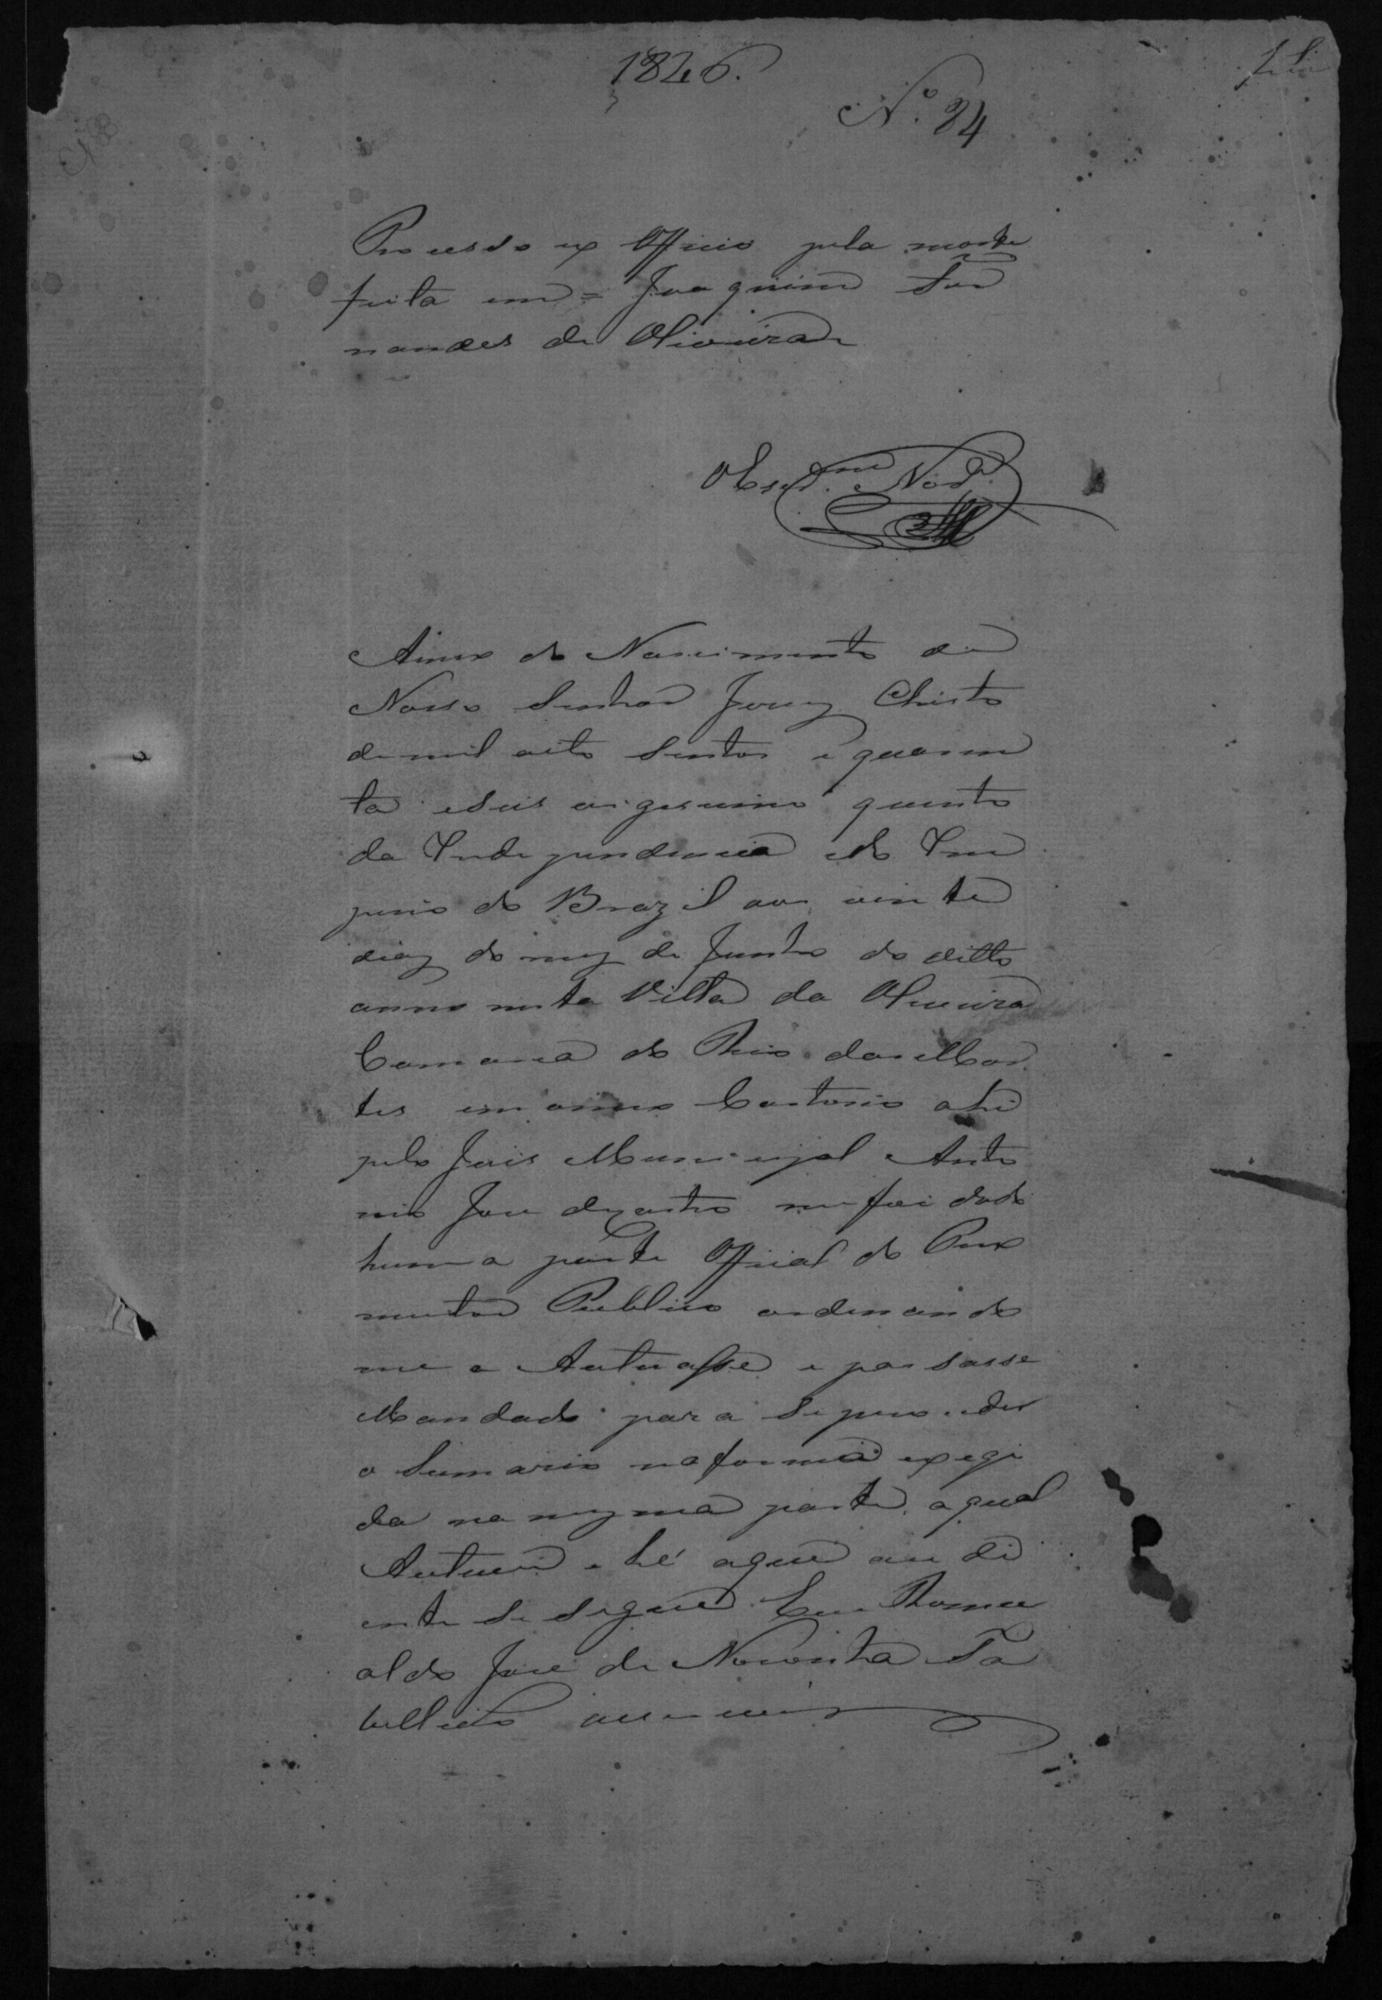 1846.
Nº 84
Processo ex Officio pela morte
feita em = Joaquim Fer
nandes de Oliveira
O Escr.am Nor.a
Anno do Nascimento de
Nosso Senhor Jezuz Christo
de mil oito sentos e quaren
ta e seis vigesimo quinto
da Independencia e do Im
perio do Brazil aos vinte
diaz do mez de Junho do ditto
anno nesta Villa da Oliveira
Comarca do Rio das Mor
tes em o meu Cartorio ahi
pelo Juis Municipal Anto
nio Jose de Castro me foi dado
huma parte Official do Pro
mutor Publico ordenando
me a Autuasse e passasse
Mandado para se proceder
o Sumario na forma exegi
da na mezma parte, a qual
Autuei e hé aque au di
ente se segue. Eu Romu
aldo Jose de Noronha Ta
bellião escrevi